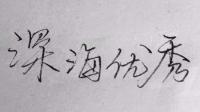 深海优秀